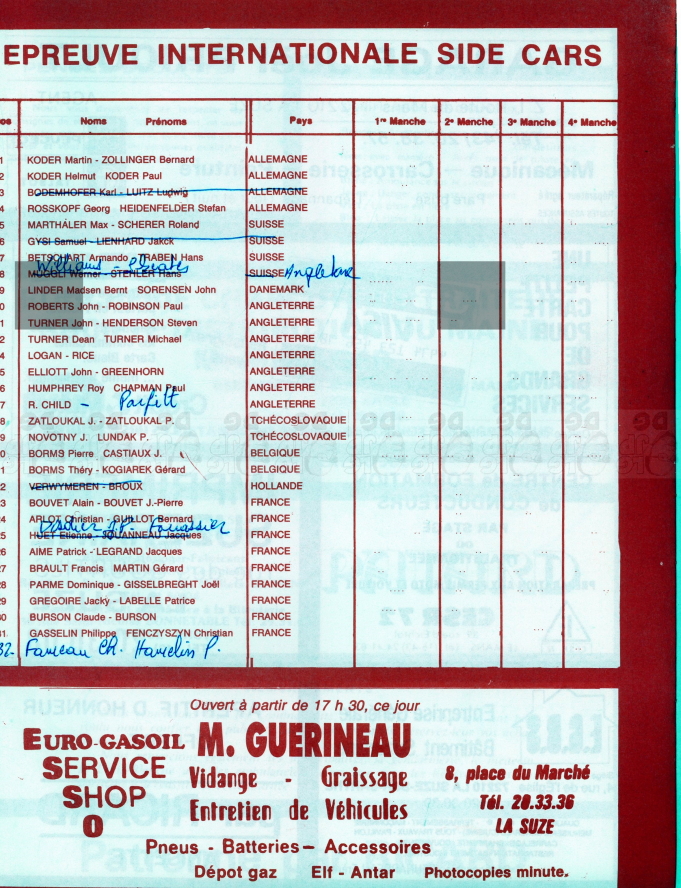 EPREUVE INTERNATIONALE SIDE CARS
os Noms Prénoms Pays 1re Manche 2e Manche 3e Manche 4e Manche
1 KODER Martin - ZOLLINGER Bernard ALLEMAGNE
2 KODER Helmut KODER Paul ALLEMAGNE
3 BODEMHOFER Karl - LUITZ Ludwig ALLEMAGNE
4 ROSSKOPF Georg HEIDENFELDER Stefan ALLEMAGNE
5 MARTHALER Max - SCHERER Roland SUISSE
6 GYSI Samuel - LIENHARD Jakck SUISSE
7 BETSCHART Armando - TRABEN Hans SUISSE
Williams
8 MUGGLI Werner - STEHLER Hans SUISSE Angleterre
9 LINDER Madsen Bernt SORENSEN John DANEMARK
0 ROBERTS John - ROBINSON Paul ANGLETERRE
1 TURNER John - HENDERSON Steven ANGLETERRE
2 TURNER Dean TURNER Michael ANGLETERRE
4 LOGAN - RICE ANGLETERRE
5 ELLIOTT John - GREENHORN ANGLETERRE
6 HUMPHREY Roy CHAPMAN Paul ANGLETERRE
7 R. CHILD - Parfitt ANGLETERRE
8 ZATLOUKAL J. - ZATLOUKAL P. TCHÉCOSLOVAQUIE
9 NOVOTNY J. LUNDAK P. TCHÉCOSLOVAQUIE
0 BORMS Pierre CASTIAUX J. BELGIQUE
1 BORMS Théry - KOGIAREK Gérard BELGIQUE
2 VERWYMEREN - BROUX HOLLANDE
23 BOUVET Alain - BOUVET J.-Pierre FRANCE
24 ARLOT Christian - GUILLOT Bernard FRANCE
J.P. Fouassier
25 HUET Etienne - JOUANNEAU Jacques FRANCE
26 AIME Patrick - LEGRAND Jacques FRANCE
27 BRAULT Francis MARTIN Gérard FRANCE
28 PARME Dominique - GISSELBREGHT Joël FRANCE
29 GREGOIRE Jacky - LABELLE Patrice FRANCE
30 BURSON Claude - BURSON FRANCE
31 GASSELIN Philippe FENCZYSZYN Christian FRANCE
32- Faveau Ch. Hamelin P.
Ouvert à partir de 17 h 30, ce jour
EURO-GASOIL M. GUERINEAU
SERVICE Vidange - Graissage 8, place du Marché
SHOP Entretien de Véhicules Tél. 20.33.36
O LA SUZE
Pneus - Batteries - Accessoires
Dépot gaz Elf - Antar Photocopies minute.